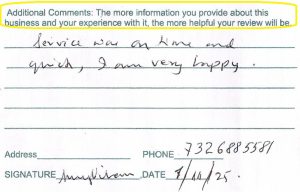 Additional Comments: The more information you provide about this
business and your experience with it, the more helpful your review will be.
Service was on time and
quick, I am very happy.
Address PHONE 7326885581
SIGNATURE DATE /25.